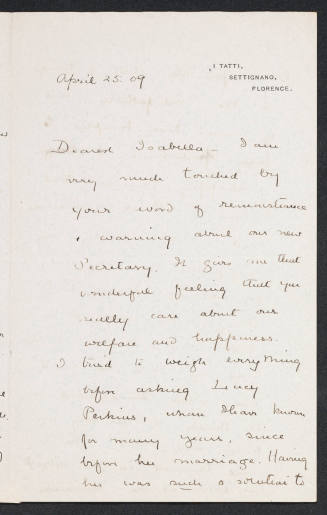 I TATTI,
SETTIGNANO,
FLORENCE.
April 25. 09
Dearest Isabella - I am
very much touched by
your word of remonstrance
& warning about our new
Secretary. It gives me that
wonderful feeling that you
really care about our
welfare and happiness.
I tried to weigh everything
before asking Lucy
Perkins, whom I have known
for many years, since
before her marriage. Having
her was such a solution to